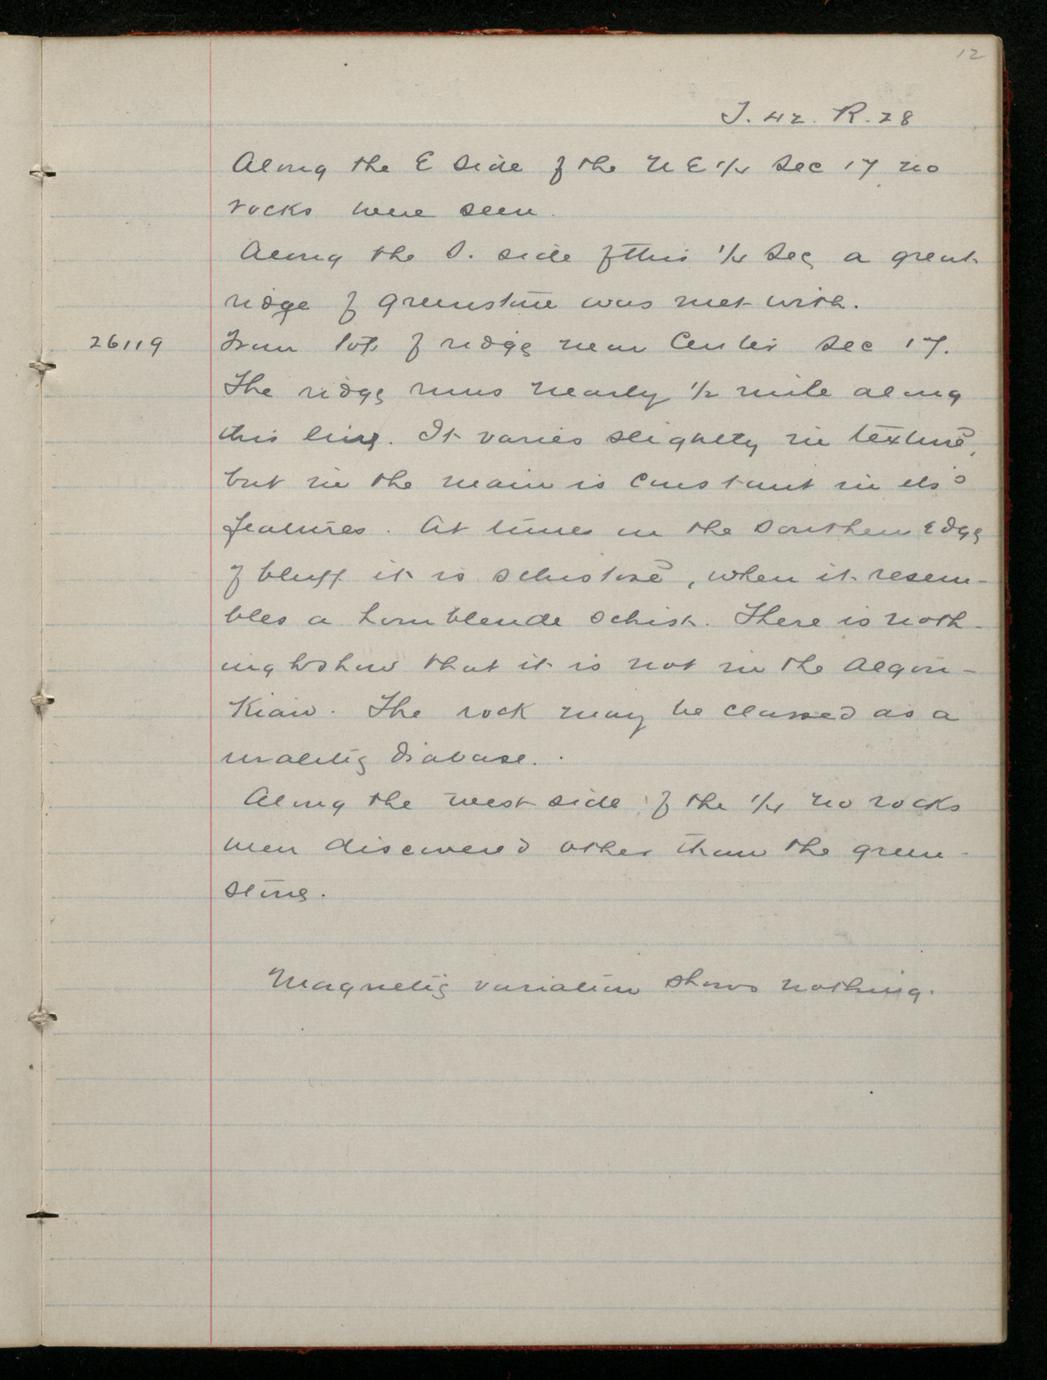 12
T. 42. R. 28
Along the E side of the N E 1/4 Sec 17 no
rocks were seen.
Along the S. side of this 1/4 Sec a great
ridge of greenstone was met with.
26119 From top of ridge near Center Sec 17.
The ridge runs nearly 1/2 mile along
this line. It varies slightly in texture,
but in the main is constant in its
features. At times on the Southern Edge
of bluff it is schistose, when it resem-
bles a hornblende schist. There is noth-
ing to show that it is not in the Algon-
Kian. The rock may be classed as a
uralitic diabase.
Along the west side of the 1/4 no rocks
were discovered other than the green-
stone.
Magnetic variation shows nothing.